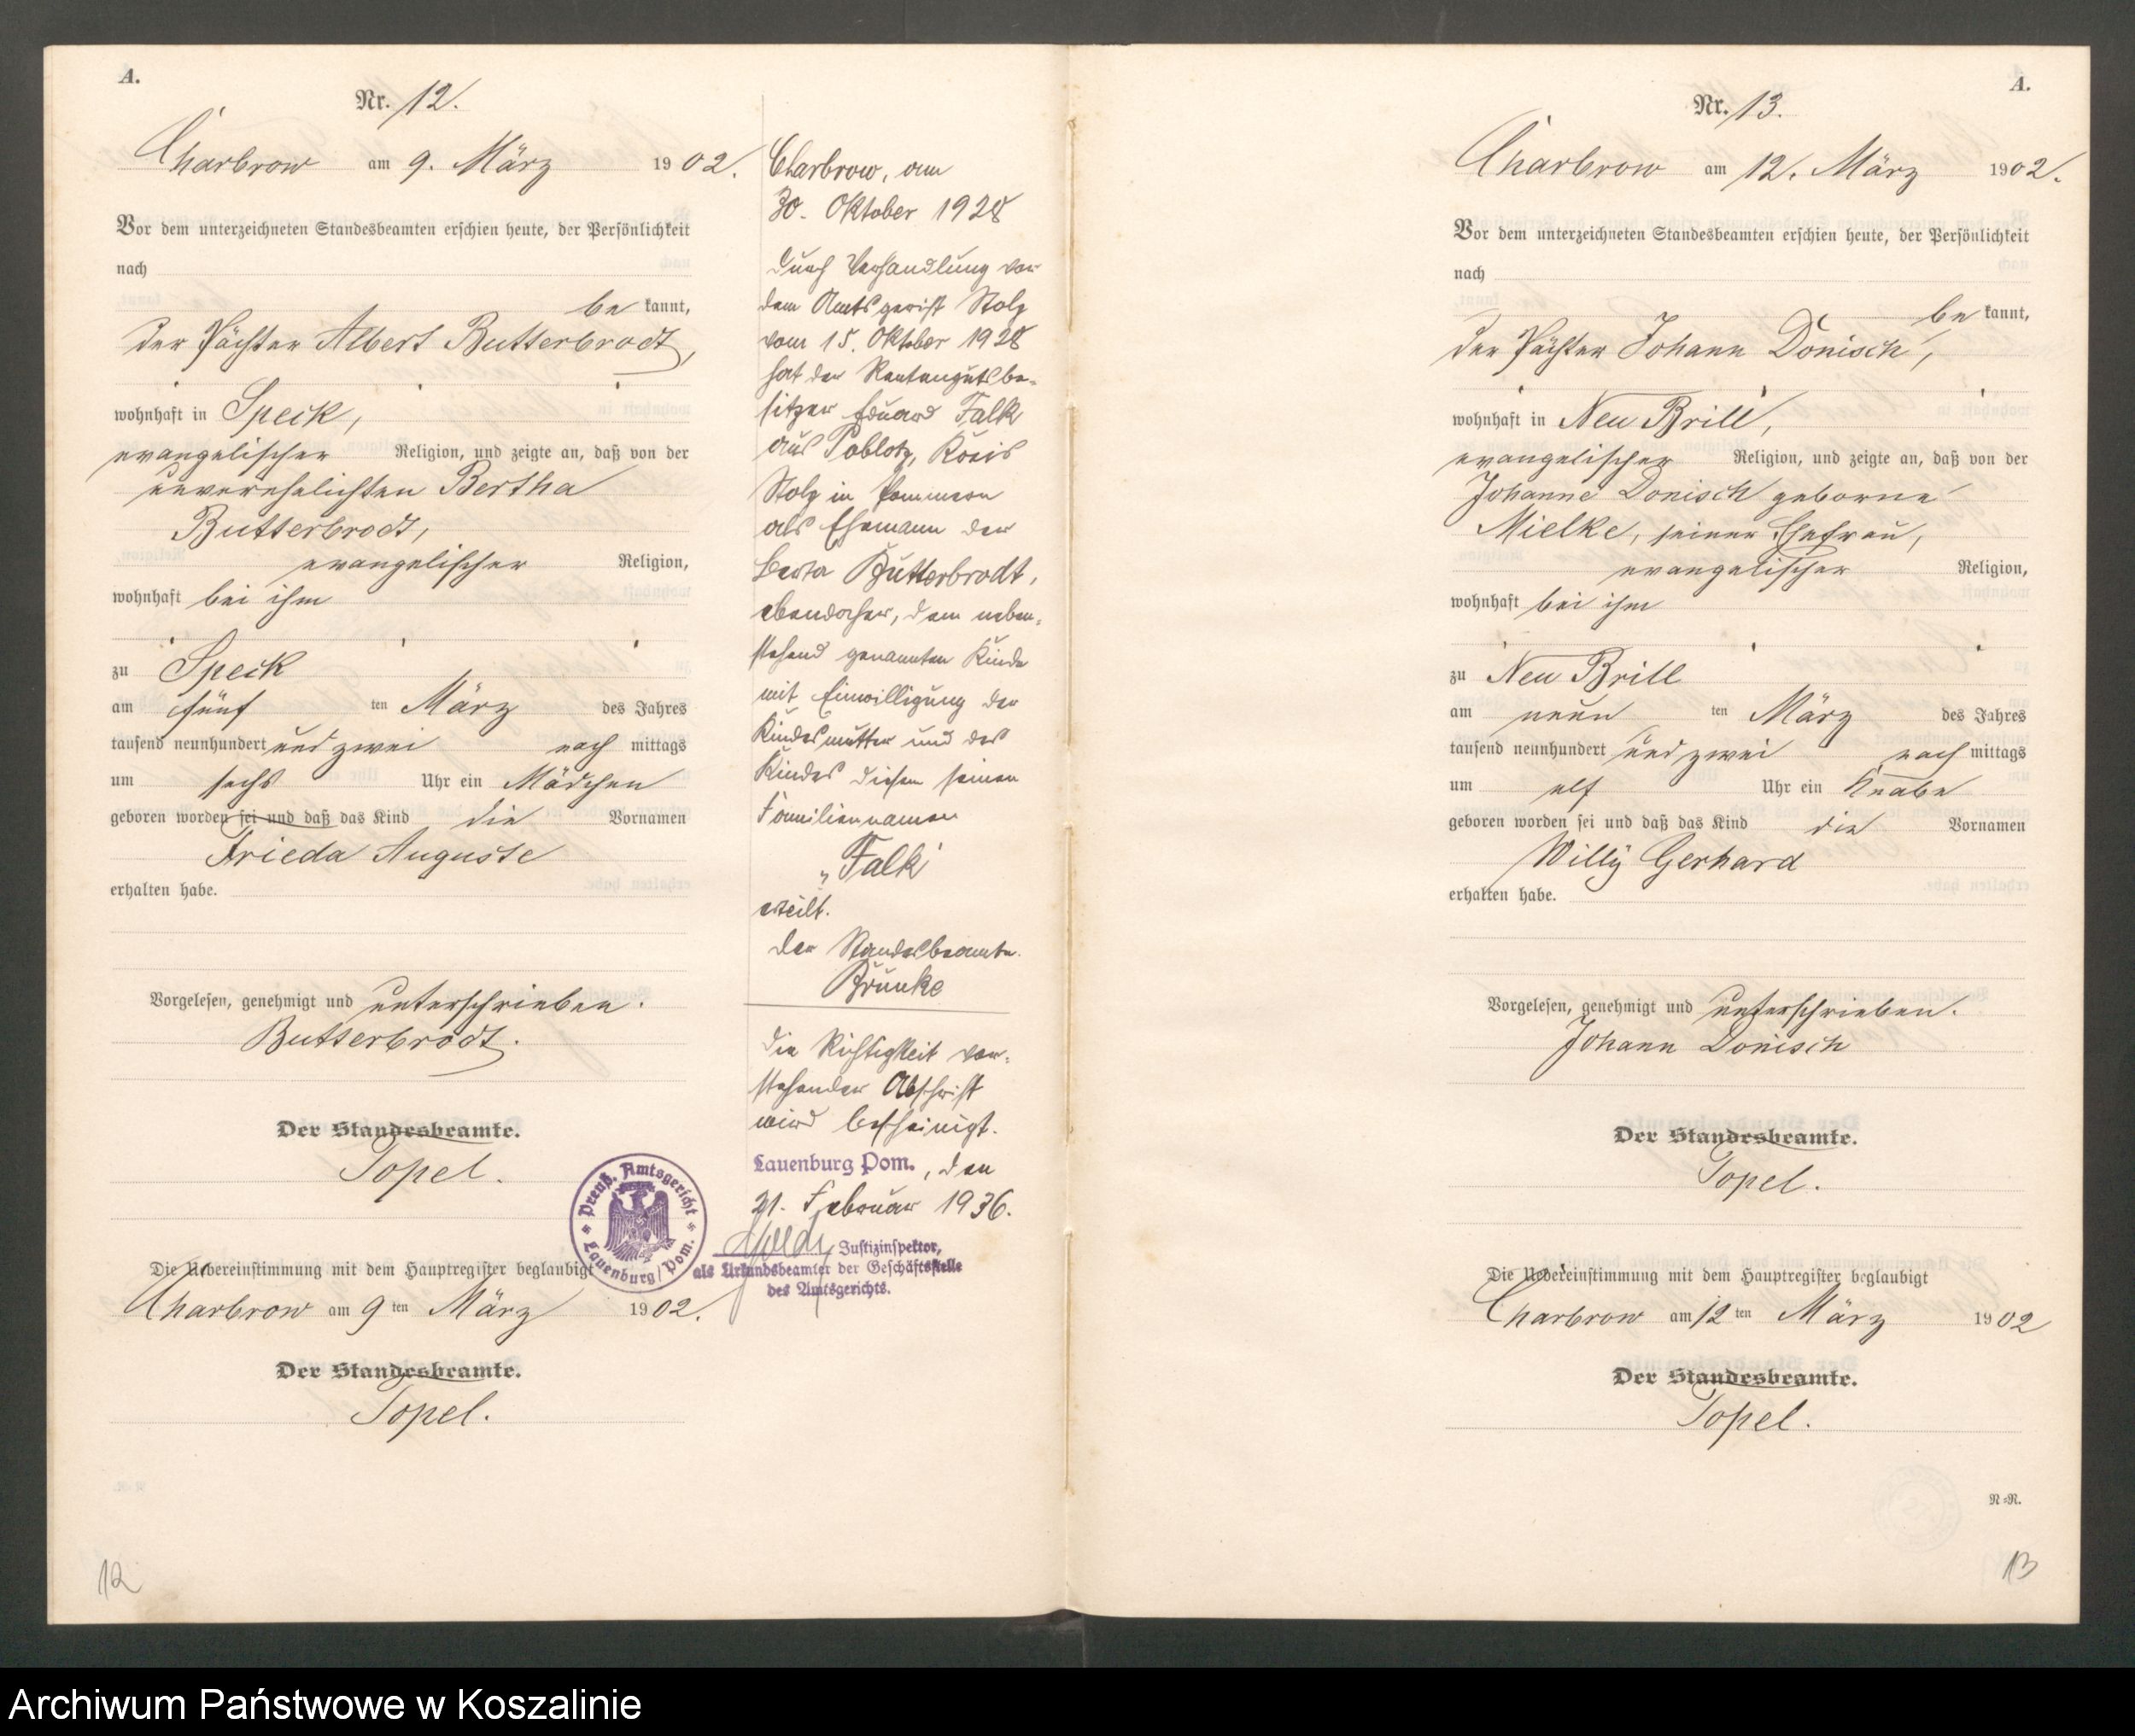 A.
Nr. 12.
Charbrow am 9. März 1902.
Vor dem unterzeichneten Standesbeamten erschien heute, der Persönlichkeit
nach
be kannt,
der Pächter Albert Butterbrodt,
wohnhaft in Speck,
evangelischer Religion, und zeigte an, daß von der
unverehelichten Bertha
Butterbrodt,
evangelischer Religion,
wohnhaft bei ihm
zu Speck
am fünf ten März des Jahres
tausend neunhundert und zwei nach mittags
um sechs Uhr ein Mädchen
geboren worden sei und daß das Kind die Vornamen
Frieda Auguste
erhalten habe.
Vorgelesen, genehmigt und unterschrieben.
Butterbrodt.
Der Standesbeamte.
Topel.
Die Uebereinstimmung mit dem Hauptregister beglaubigt
Charbrow am 9 ten März 1902.
Der Standesbeamte.
Topel.
12
Charbrow, am
30. Oktober 1928
Durch Verhandlung vor
dem Amtsgericht Stolp
vom 15. Oktober 1928
hat der Rentengutsbe-
sitzer Eduard Falk
aus Poblotz, Kreis
Stolp in Pommern
als Ehemann der
Berta Butterbrodt,
ebendaher, dem neben-
stehend genannten Kinde
mit Einwilligung der
Kindesmutter und des
Kindes diesem seinen
Familiennamen
„Falk"
erteilt.
Der Standesbeamte.
Brünke
Die Richtigkeit vor-
stehender Abschrift
wird bescheinigt.
Lauenburg Pom., den
21. Februar 1936.
Justizinspektor,
als Urkundsbeamter der Geschäftsstelle
des Amtsgerichts.
Preuß. Amtsgericht
Lauenburg/Pom.
A.
Nr. 13.
Charbrow am 12. März 1902.
Vor dem unterzeichneten Standesbeamten erschien heute, der Persönlichkeit
nach
be kannt,
der Pächter Johann Donisch,
wohnhaft in Neu Brill,
evangelischer Religion, und zeigte an, daß von der
Johanne Donisch geborne
Mielke, seiner Ehefrau,
evangelischer Religion,
wohnhaft bei ihm
zu Neu Brill
am neun ten März des Jahres
tausend neunhundert und zwei nach mittags
um elf Uhr ein Knabe
geboren worden sei und daß das Kind die Vornamen
Willy Gerhard
erhalten habe.
Vorgelesen, genehmigt und unterschrieben.
Johann Donisch
Der Standesbeamte.
Topel.
Die Uebereinstimmung mit dem Hauptregister beglaubigt
Charbrow am 12 ten März 1902
Der Standesbeamte.
Topel.
N=N.
13
Archiwum Państwowe w Koszalinie